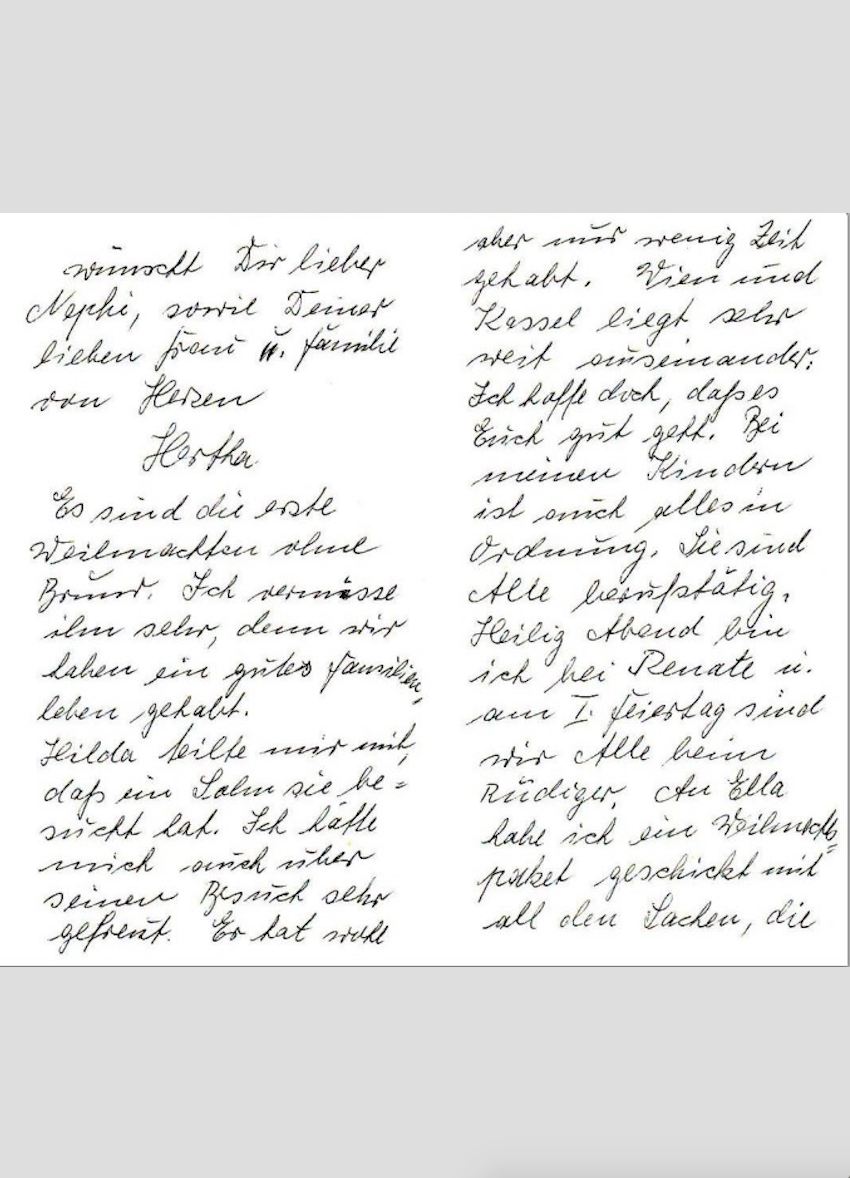 wünscht Dir lieber
Nephi, sowie Deiner
lieben Frau u. Familie
von Herzen
Hertha
Es sind die erste
Weihnachten ohne
Bruno. Ich vermisse
ihn sehr, denn wir
haben ein gutes Familien=
leben gehabt.
Hilda teilte mir mit,
daß ein Sohn sie be=
sucht hat. Ich hätte
mich auch über
seinen Besuch sehr
gefreut. Er hat wohl
aber nur wenig Zeit
gehabt. Wien und
Kassel liegt sehr
weit auseinander.
Ich hoffe doch, daß es
Euch gut geht. Bei
meinen Kindern
ist auch alles in
Ordnung. Sie sind
Alle berufstätig.
Heilig Abend bin
ich bei Renate u.
am I. Feiertag sind
wir Alle beim
Rüdiger. An Ella
habe ich ein Weihnachts=
paket geschickt mit
all den Sachen, die